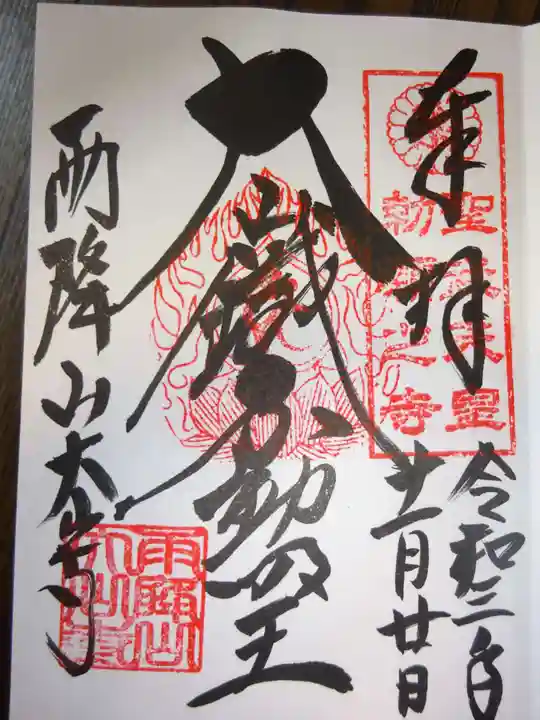 奉拝
聖武天皇
勅願之寺
令和三年
十一月廿日
大山鐵不動明王
雨降山大山寺
雨降山
大山寺